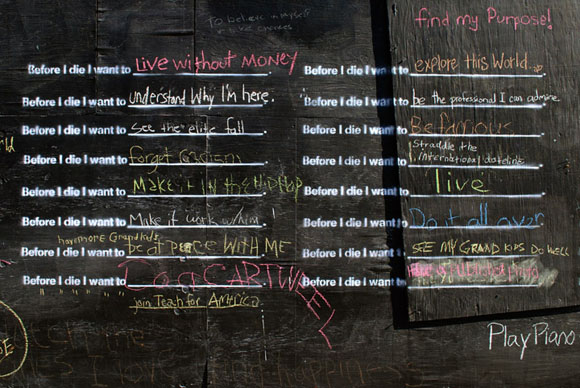 To believe in myself
find my Purpose!
Before I die I want to Live without MONEY
Before I die I want to understand Why I'm here.
Before I die I want to see the elite fall
Before I die I want to forget
Before I die I want to MAKE it IN the HIPHOP
Before I die I want to Make it work w/him
have more Grandkids
Before I die I want to be at PEACE WITH ME
Before I die I want to Do a CARTWHEEL
" " " " " join Teach for AMErica
Before I die I want to explore this World.
Before I die I want to be the professional I can admire
Before I die I want to Be famous
Straddle the
Before I die I want to International dateline
Before I die I want to live
Before I die I want to Do it all over
Before I die I want to SEE MY GRAND KIDS DO WELL
Before I die I want to
Play Piano